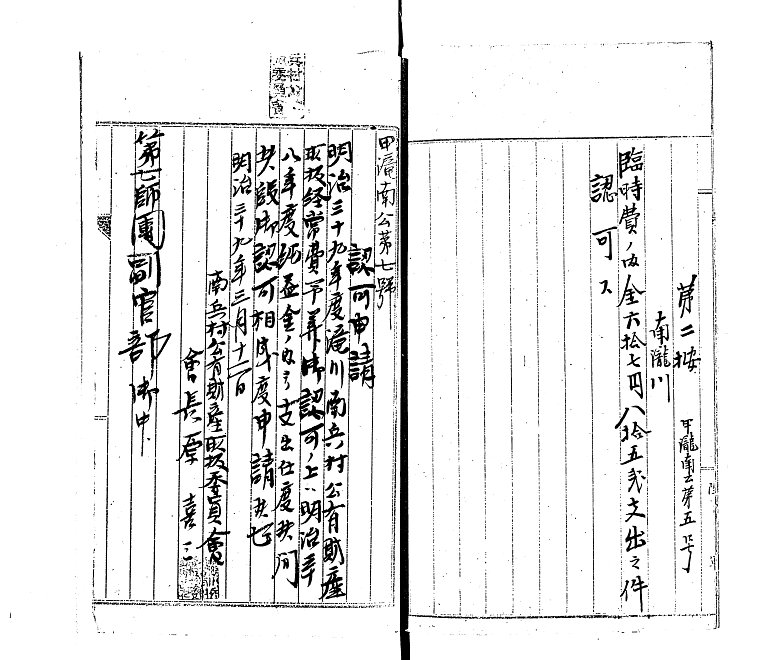 第二按
甲瀧南公第五号
南瀧川
臨時費ノ内金六拾七円八拾五戔支出之件
認可ス
甲滝南公第七號
認可申請
明治三十九年度滝川南兵村公有財産
取扱経常費予算御認可ノ上ハ明治三十
八年度純益金ノ内ヨリ支出仕度共間
共議御認可相成度申請共也
明治三十九年三月十二日
南兵村公有財産取扱委員會
會長 原 喜三
第七師團副官部 御中